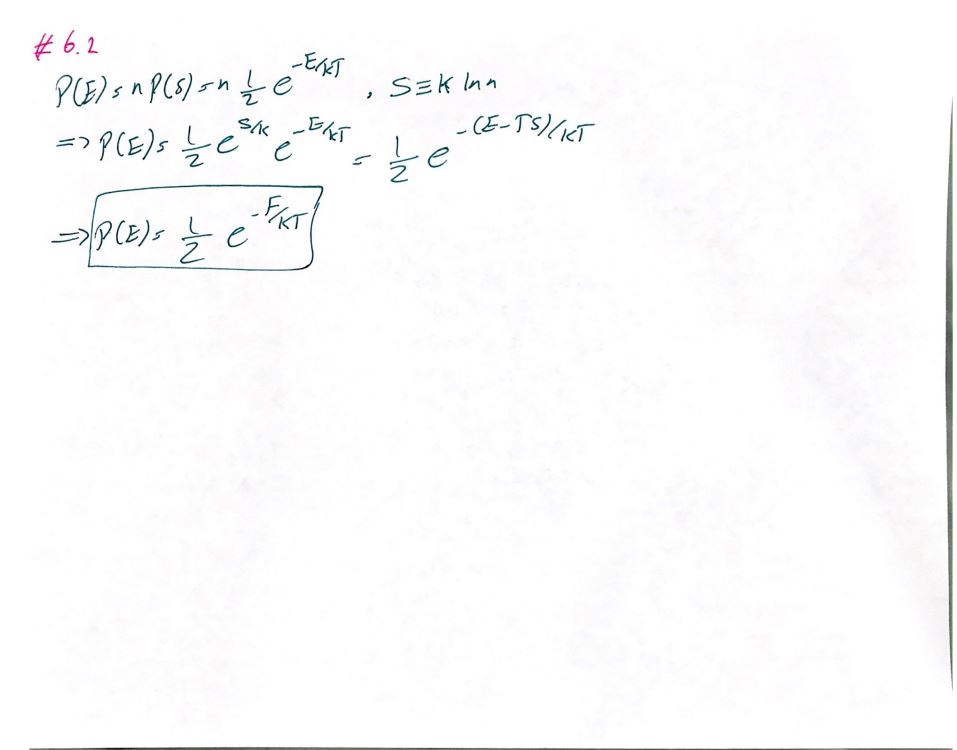 # 6.2
P(E) = n P(S) = n 1/Z e^{-E/kT} , S ≡ k ln n
=> P(E) = 1/Z e^{S/k} e^{-E/kT} = 1/Z e^{-(E-TS)/kT}
=> P(E) = 1/Z e^{-F/kT}